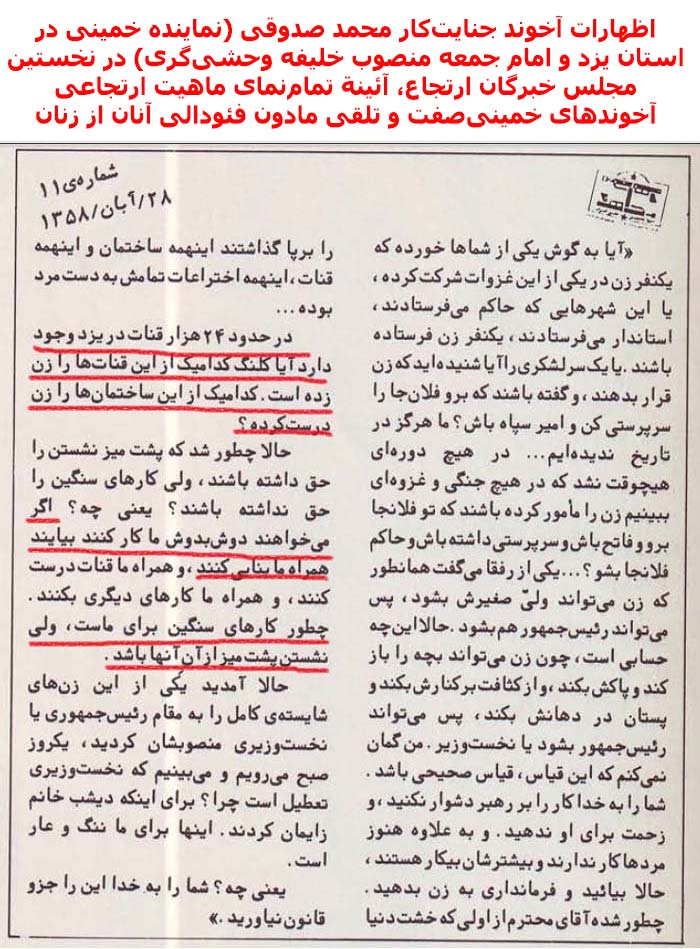 اظهارات آخوند جنایت‌کار محمد صدوقی (نماینده خمینی در
استان یزد و امام جمعه منصوب خلیفه وحشی‌گری) در نخستین
مجلس خبرگان ارتجاع، آئینة تمام‌نمای ماهیت ارتجاعی
آخوندهای خمینی‌صفت و تلقی مادون فئودالی آنان از زنان
شماره‌ی ۱۱
۲۸/آبان/۱۳۵۸
«آیا به گوش یکی از شماها خورده که
یکنفر زن در یکی از این غزوات شرکت کرده،
یا این شهرهایی که حاکم می‌فرستادند،
استاندار می‌فرستادند، یکنفر زن فرستاده
باشند. یا یک سرلشکری را آیا شنیده‌اید که زن
قرار بدهند، و گفته باشند که برو فلان‌جا را
سرپرستی کن و امیر سپاه باش؟ ما هرگز در
تاریخ ندیده‌ایم... در هیچ دوره‌ای
هیچوقت نشد که در هیچ جنگی و غزوه‌ای
ببینیم زن را مأمور کرده باشند که تو فلانجا
برو و فاتح باش و سرپرستی داشته باش و حاکم
فلانجا بشو؟...یکی از رفقا می‌گفت همانطور
که زن می‌تواند ولیّ صغیرش بشود، پس
می‌تواند رئیس‌جمهور هم بشود. حالا این‌چه
حسابی است، چون زن می‌تواند بچه را باز
کند و پاکش بکند، و از کثافت بر کنارش بکند و
پستان در دهانش بکند، پس می‌تواند
رئیس‌جمهور بشود یا نخست‌وزیر. من گمان
نمی‌کنم که این قیاس، قیاس صحیحی باشد.
شما را به خدا کار را بر رهبر دشوار نکنید، و
زحمت برای او ندهید. و به علاوه هنوز
مردها کار ندارند و بیشترشان بیکار هستند،
حالا بیائید و فرمانداری به زن بدهید.
چطور شده آقای محترم از اولی که خشت دنیا
را برپا گذاشتند اینهمه ساختمان و اینهمه
قنات، اینهمه اختراعات تمامش به دست مرد
بوده...
در حدود ۲۴ هزار قنات در یزد وجود
دارد آیا کلنگ کدامیک از این قنات‌ها را زن
زده است. کدامیک از این ساختمان‌ها را زن
درست کرده؟
حالا چطور شد که پشت میز نشستن را
حق داشته باشند، ولی کارهای سنگین را
حق نداشته باشند؟ یعنی چه؟ اگر
می‌خواهند دوش‌بدوش ما کار کنند بیایند
همراه ما بنایی کنند، و همراه ما قنات درست
کنند، و همراه ما کارهای دیگری بکنند.
چطور کارهای سنگین برای ماست، ولی
نشستن پشت میز از آن آنها باشد.
حالا آمدید یکی از این زن‌های
شایسته‌ی کامل را به مقام رئیس‌جمهوری یا
نخست‌وزیری منصوبشان کردید، یکروز
صبح می‌رویم و می‌بینیم که نخست‌وزیری
تعطیل است چرا؟ برای اینکه دیشب خانم
زایمان کردند. اینها برای ما ننگ و عار
است.
یعنی چه؟ شما را به خدا این را جزو
قانون نیاورید.»